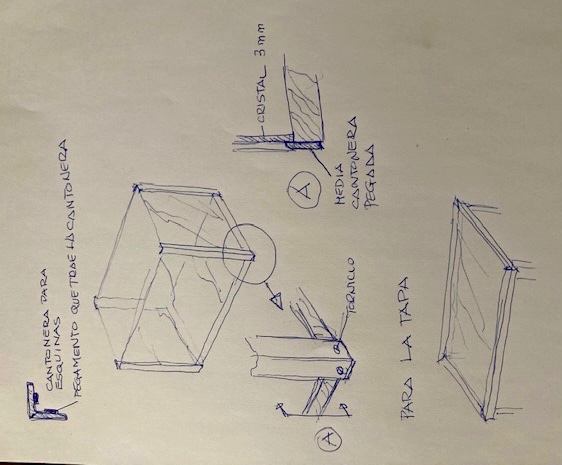 CANTONERA PARA
ESQUINAS
PEGAMENTO QUE TRAE LA CANTONERA
CRISTAL 3 mm
A
MEDIA
CANTONERA
PEGADA
TORNILLO
A
PARA LA TAPA